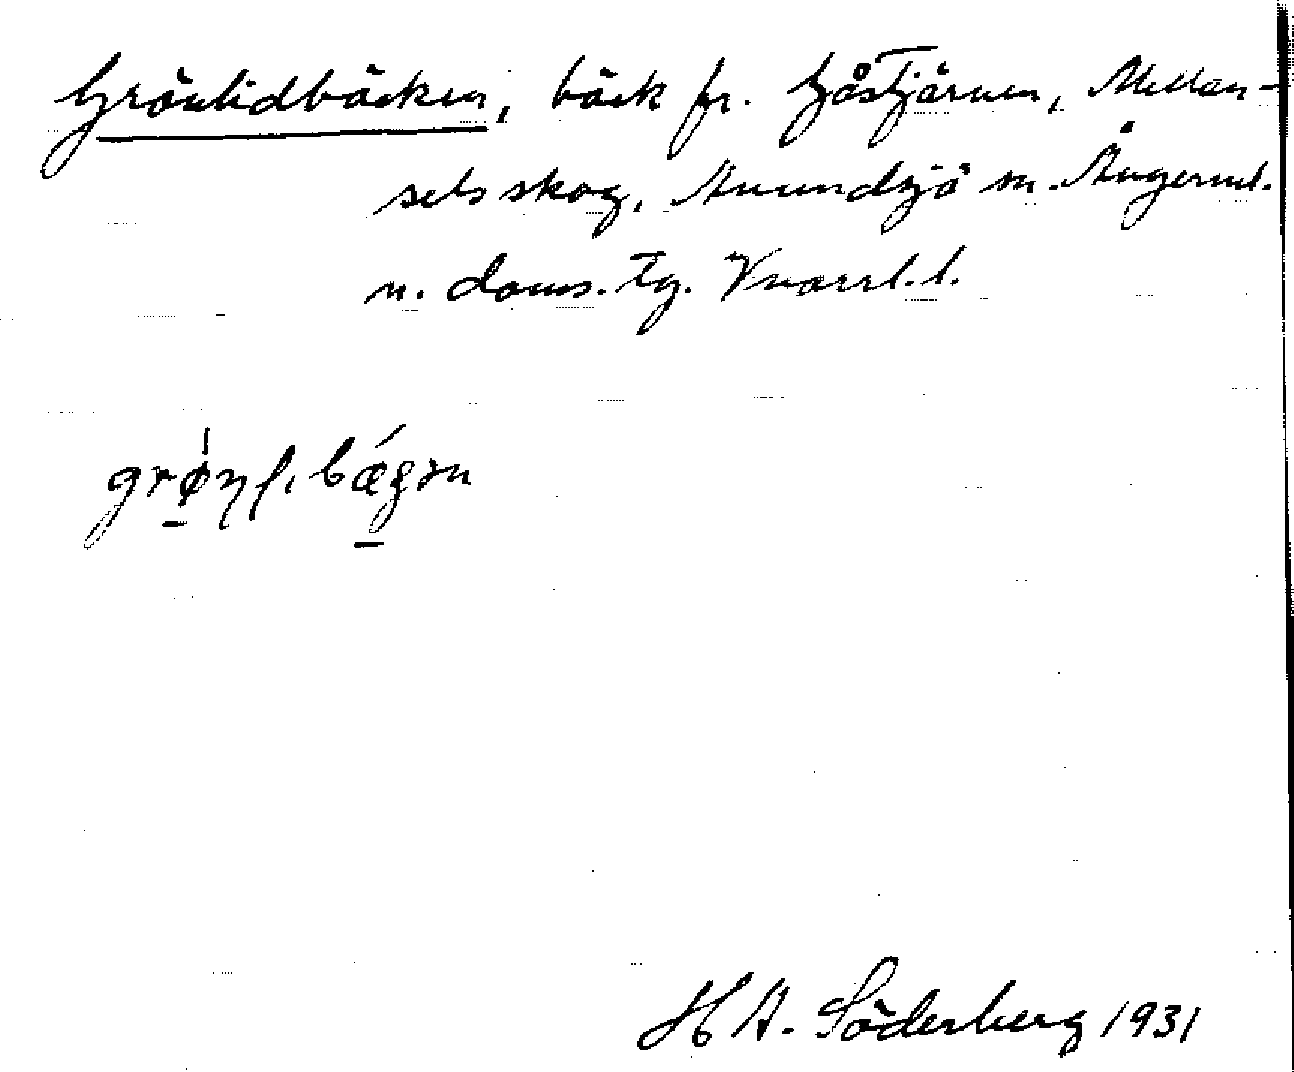 Grönlidbäcken, bäck fr. Gåstjärnen, Mellan-
sels skog, Anundsjö sn. Ångerml.
n. doms. tg. Vnorrl. l.
bǽgən
H A. Söderberg 1931